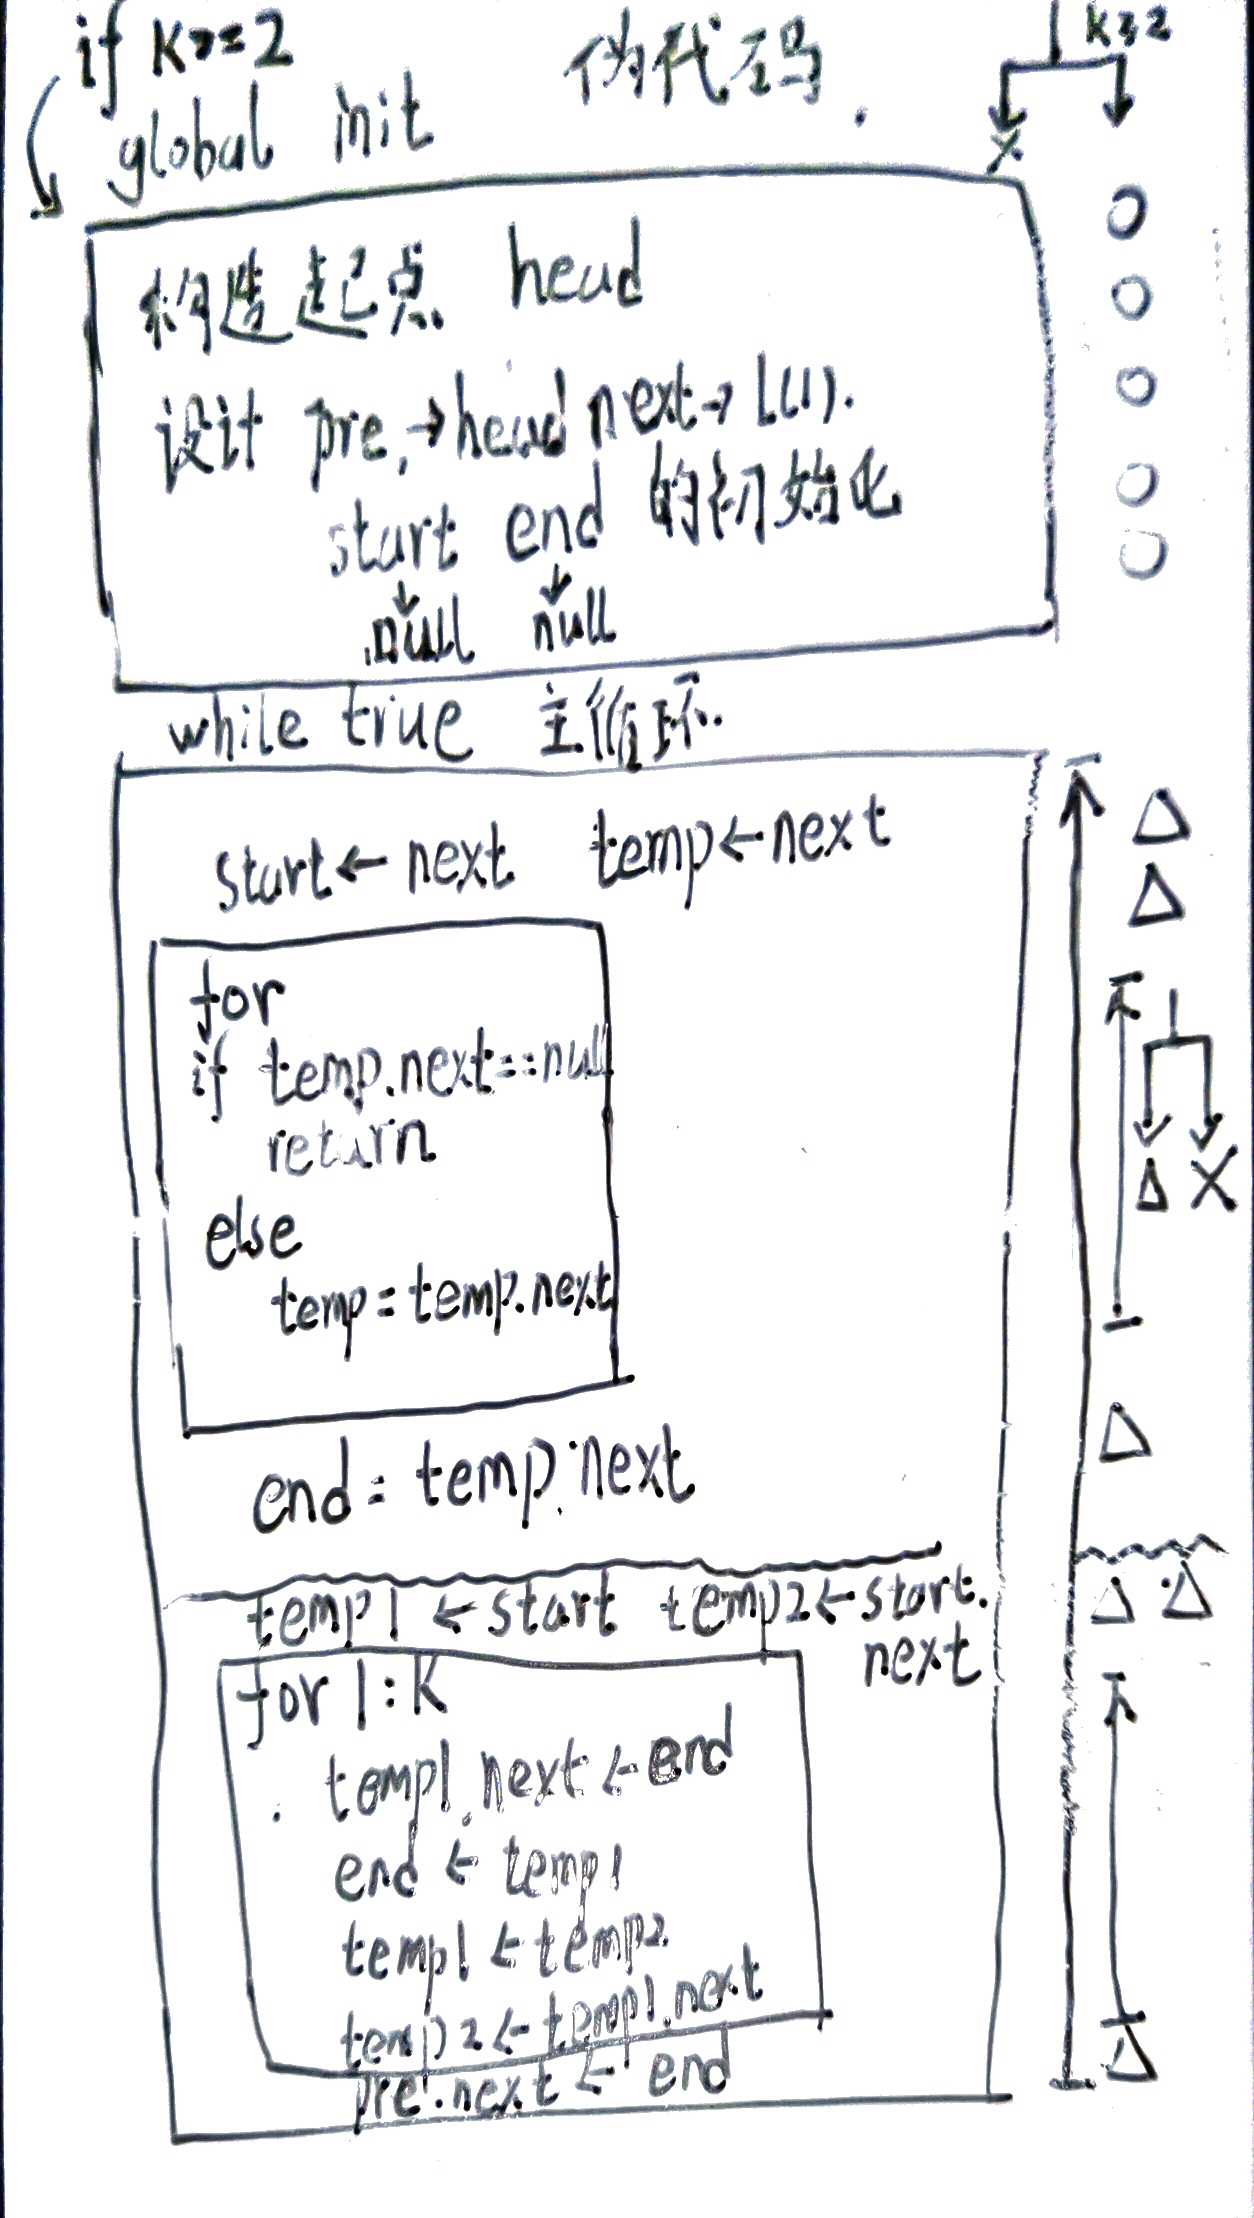 if K>=2
伪代码.
K>=2
global init
×
构造起点 head
设计 pre,→head next→L(1).
start end 的初始化
↓ ↓
null null
while true 主循环.
start←next temp←next
for
if temp.next==null
return
else
temp=temp.next
end=temp.next
temp1←start temp2←start.
next
for 1:K
temp1.next←end
end←temp1
temp1←temp2
temp2←temp1.next
pre.next←end